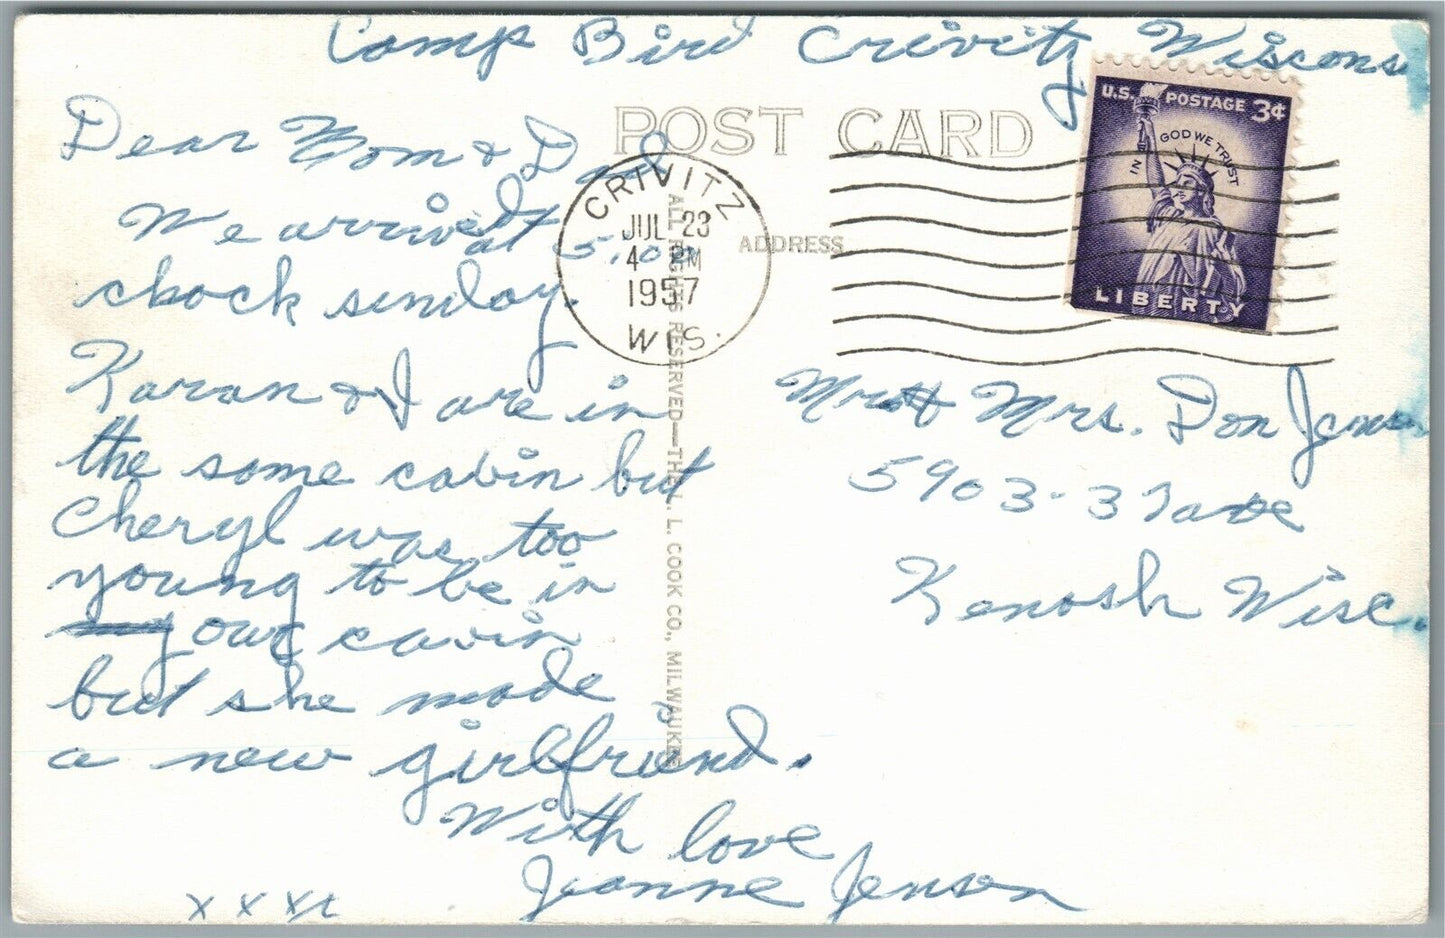 Camp Bird Crivitz Wiscons
POST CARD
U.S. POSTAGE 3¢
IN GOD WE TRUST
LIBERTY
CRIVITZ
JUL 23
4 PM
1957
WIS.
ADDRESS
ALL RIGHTS RESERVED—THE L. L. COOK CO., MILWAUKEE
Dear Mom & Dad
We arrived at 5:00
chock sunday.
Karan & I are in
the same cabin but
Cheryl was too
young to be in
my our cavin
but she made
a new girlfriend.
With love
Jeanne Jensen
x x x x
Mr & Mrs. Don Jens
5903-37 ave
Kenosh Wisc.